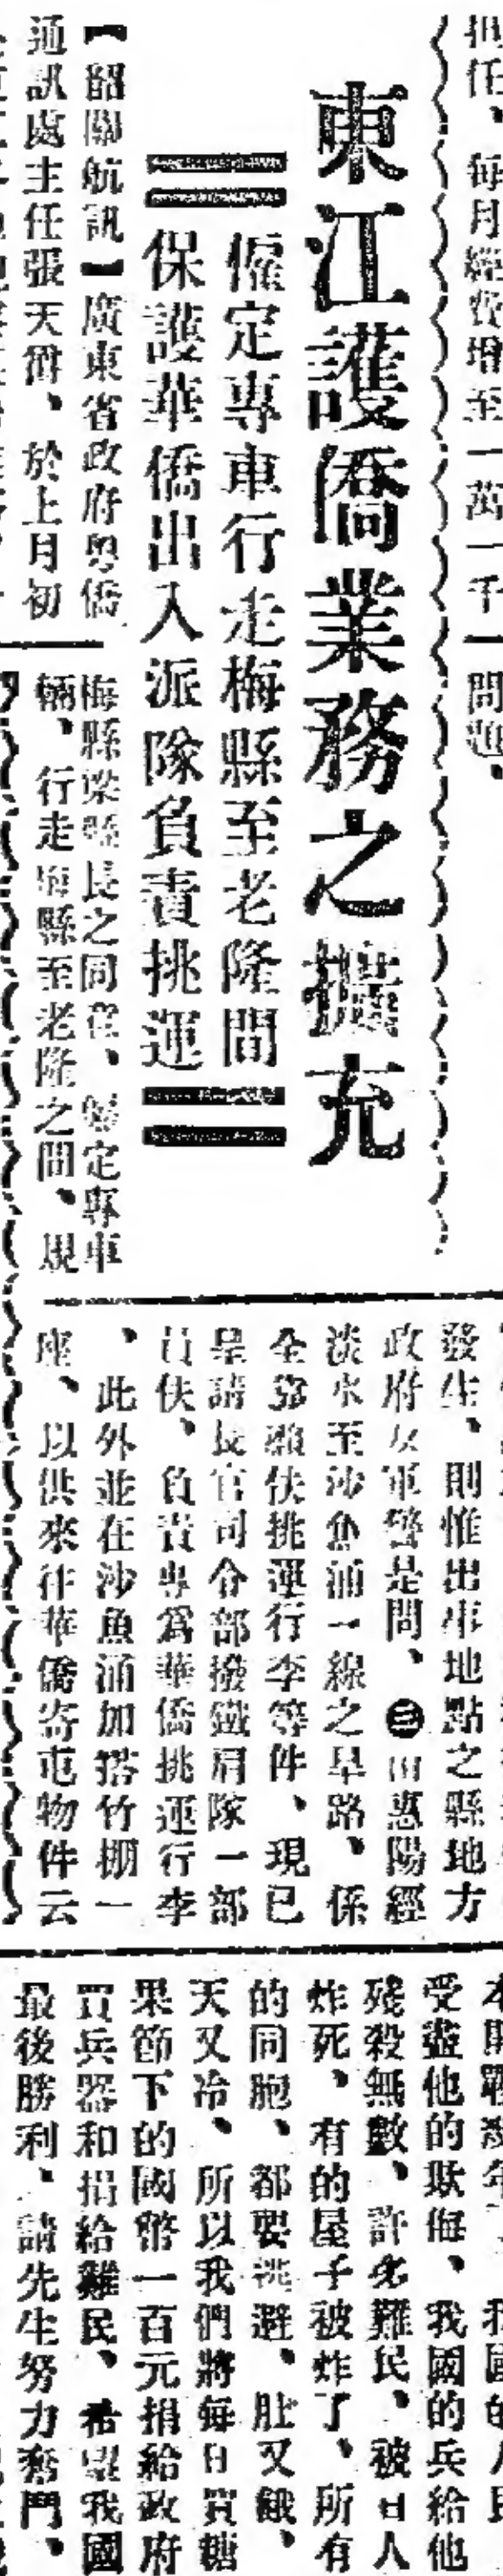 担任、每月經費增至一萬一千
問題、
東江護僑業務之擴充
僱定專車行走梅縣至老隆間
保護華僑出入派隊負責挑運
【韶關航訊】廣東省政府粵僑
通訊處主任張天爵、於上月初
梅縣梁縣長之同意、僱定專車
輛、行走梅縣至老隆之間、規
發生、則惟出事地點之縣地方
政府及軍警是問、㊂由惠陽經
淡水至沙魚涌一線之旱路、係
全靠僱伕挑運行李等件、現已
呈請長官司令部撥鐵肩隊一部
員伕、負責專爲華僑挑運行李
、此外並在沙魚涌加搭竹棚一
座、以供來往華僑寄屯物件云
受盡他的欺侮、我國的兵給他
殘殺無數、許多難民、被日人
炸死、有的屋子被炸了、所有
的同胞、都要逃避、肚又餓、
天又冷、所以我們將每日買糖
果節下的國幣一百元捐給政府
買兵器和捐給難民、希望我國
最後勝利、請先生努力奮鬥、